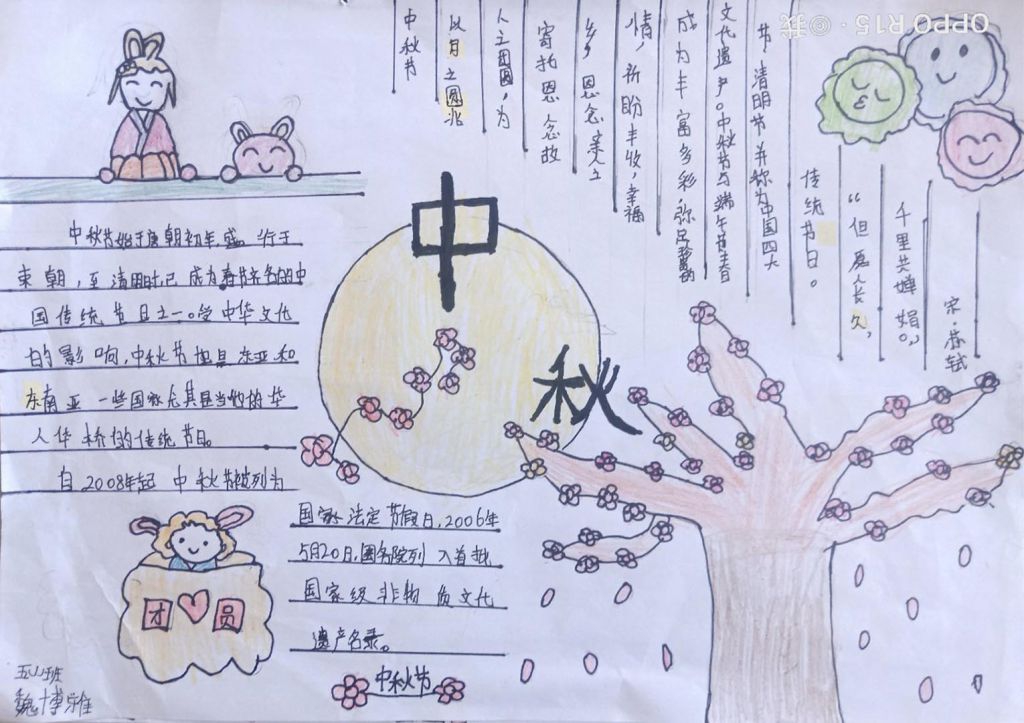 中
秋
中秋节始于唐朝初年,盛行于
宋朝,至清明时,已成为春节齐名的中
国传统节日之一。受中华文化
的影响,中秋节也是东亚和
东南亚一些国家尤其是当地的华
人华桥的传统节日。
自2008年起中秋节被列为
国家法定节假日,2006年
5月20日,国务院列入首批
国家级非物质文化
遗产名录。
中秋节
团员
五
班
魏博雅
中秋节
以月之圆兆
人之团圆,为
寄托思念故
乡,思念亲人之
情,祈盼丰收,幸福
成为丰富多彩,弥足珍贵的
文化遗产。中秋节与端午节春
节,清明节并称为中国四大
传统节日。
“但愿人长久,
千里共婵娟。”
宋·苏轼
OPPO R15·@我